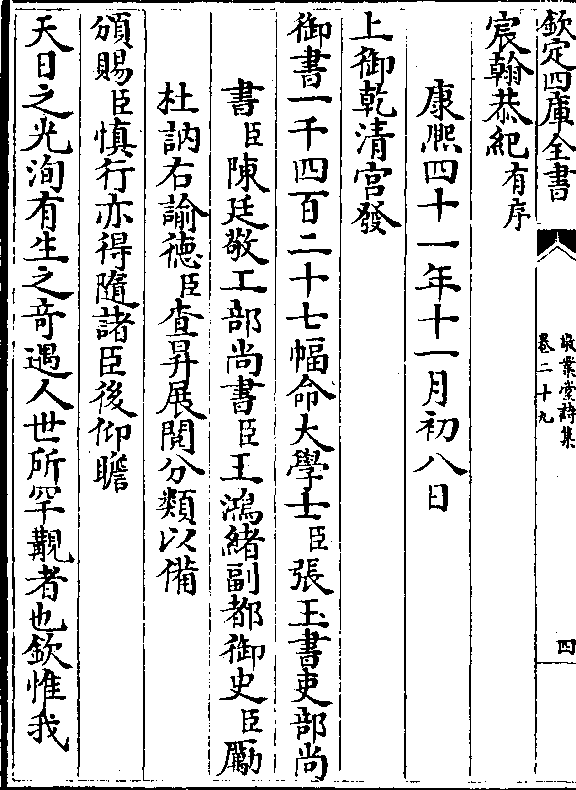 欽定四庫全書
敬業堂詩集
卷二十九
四
宸翰恭紀有序
康熙四十一年十一月初八日
上御乾清宮發
御書一千四百二十七幅命大學士臣張玉書吏部尚
書臣陳廷敬工部尚書臣王鴻緒副都御史臣勵
杜訥右諭德臣查昇展閱分類以備
頒賜臣慎行亦得隨諸臣後仰瞻
天日之光洵有生之奇遇人世所罕覯者也欽惟我